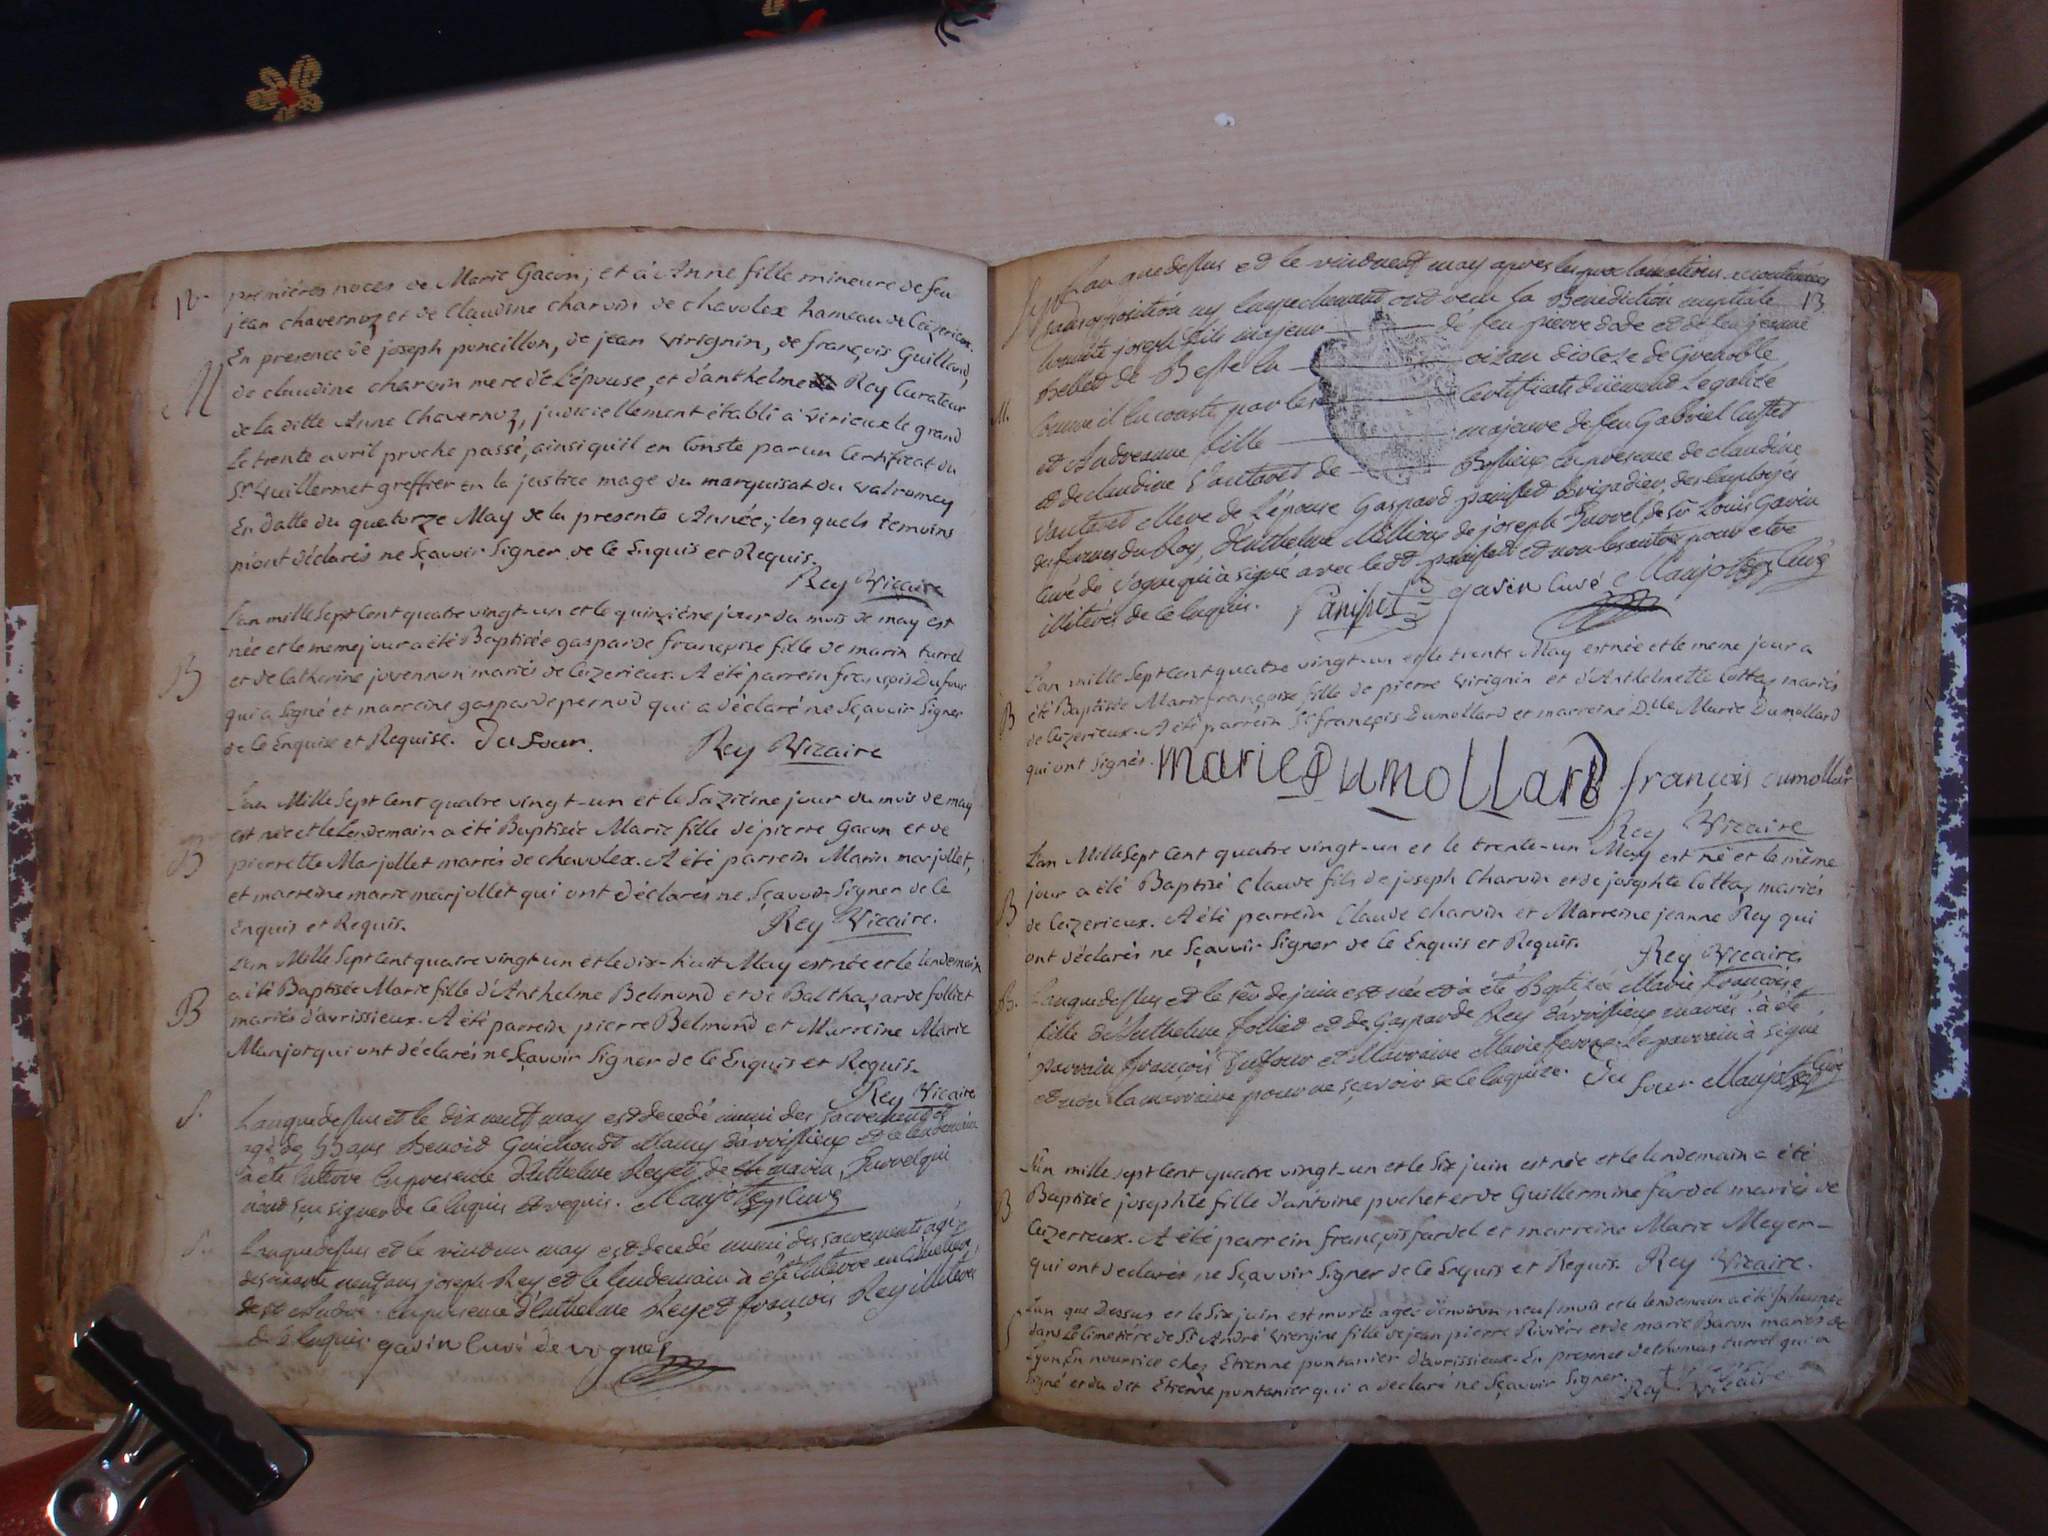 premiéres noces de Marie Gacon; et à Anne fille mineure de feu
jean chavernoz et de Claudine charvin de chavolex hameau de Ceizerieux.
En presence de joseph poncillon, de jean virignin, de françois Guilland,
M
de claudine charvin mere de l'épouse, et d'anthelme Rey Curateur
de la ditte Anne Chavernoz, judiciellement établi à virieux le grand
le trente avril proche passé, ainsi qu'il en Conste par un Certificat du
Sr Guillermet greffier en la justice mage du marquisat du valromey
En datte du quatorze May de la presente Année; les quels temoins
m'ont déclarés ne Sçavoir Signer de ce Enquis et Requis.
Rey Vicaire
L'an mille Sept Cent quatre vingt-un et le quinziéme jour du mois de may est
née et le meme jour a été Baptisée gasparde françoise fille de marin turrel
B et de Catherine jovennon mariés de Ceizerieux. A été parrein françois Dufour
qui a Signé et marreine gasparde pernod qui a déclaré ne Sçavoir Signer
de ce Enquise et Requise. Dufour. Rey Vicaire
L'an Mille Sept Cent quatre vingt-un et le Saiziéme jour du mois de may
est née et le Lendemain a été Baptisée Marie fille de pierre Gacon et de
B pierrette Marjollet mariés de chavolex. A été parrein Marin marjollet,
et marreine marie marjollet qui ont déclarés ne Sçavoir Signer de ce
Enquis et Requis. Rey Vicaire.
L'an Mille Sept Cent quatre vingt un et le dix-huit May est née et le lendemain
a été Baptisée Marie fille d'Anthelme Belmond et de Balthasarde folliet
B mariés d'avrissieux. A été parrein pierre Belmond et Marreine Marie
Manjot qui ont déclarés ne Sçavoir Signer de ce Enquis et Requis.
Rey Vicaire
S. L'an que dessus et le dix neuf may est decedé muni des sacrements
agé de ans Benoit d'avrissieux et le lendemain
a eté enterré en presence d'Anthelme Rey et de marin Turrel qui
n'ont sçu signer de ce enquis et requis. Manjot Curé
S. L'an que dessus et le vint un may est decedé muni des sacrements agé
de soixante neuf ans joseph Rey et le lendemain a eté enterré au cimetiere
de St André en presence d'Anthelme Rey et françois Rey illiterés
de ce enquis gavin Curé de vognes
13
L'an que dessus et le vint neuf may apres les proclamations
sans opposition ny empechement ont reçu la Benediction nuptiale
honnete joseph fils majeur de feu pierre dode et de feu jeanne
de Besse la oizan diocese de Grenoble
M. comme il en conste par les certificats duëment legalisé
et Andreanne fille majeure de feu Gabriel
et de claudine Vautaret de en presence de claudine
Vautaret mere de l'épouse Gaspard panisset Brigadier des employés
des fermes du Roy, d'Anthelme Million de joseph Turrel de Sr Louis Gavin
curé de vogne qui a signé avec ledt panisset et non les autres pour etre
illiterés de ce enquis. Panisset gavin Curé Manjot Curé
L'an mille Sept Cent quatre vingt-un et le trente May est née et le meme jour a
B été Baptisée Marie françoise fille de pierre virignin et d'Anthelmette Cottaz mariés
de Ceizerieux. A été parrein Sr françois Dumollard et marreine Dlle Marie Dumollard
qui ont Signés. marie Dumollard françois dumollard
Rey Vicaire
L'an Mille Sept Cent quatre vingt-un et le trente-un May est né et le même
B jour a été Baptisé Claude fils de joseph Charvin et de josephte Cottaz mariés
de Ceizerieux. A été parrein Claude charvin et Marreine jeanne Rey qui
ont déclarés ne Sçavoir Signer de ce Enquis et Requis. Rey Vicaire
B. L'an que dessus et le 1er de juin est née et a été Baptisée Marie françoise
fille d'Anthelme folliet et de Gasparde Rey d'avrissieux mariés. a été
parrain françois Duffour et Marraine Marie ferroz. Le parrain a signé
et non la marraine pour ne sçavoir de ce enquise. Dufour Manjot Curé
L'an mille sept Cent quatre vingt-un et le Six juin est née et le lendemain a été
B Baptisée josephte fille d'antoine pochet et de Guillermine fardel mariés de
Ceizerieux. A été parrein françois fardel et marreine Marie Meyer-
qui ont déclarés ne Sçavoir Signer de ce Enquis et Requis. Rey Vicaire.
S L'an que Dessus et le Six juin est morte agée d'environ neuf mois et le lendemain a été Inhumée
dans le Cimetiére de St André virginie fille de jean pierre Riviére et de marie Baron mariés de
Lyon En nourrice chez Etienne pontanier d'avrissieux. En presence de thomas turrel qui a
Signé et du dit Etienne pontanier qui a declaré ne Sçavoir Signer.
Rey Vicaire